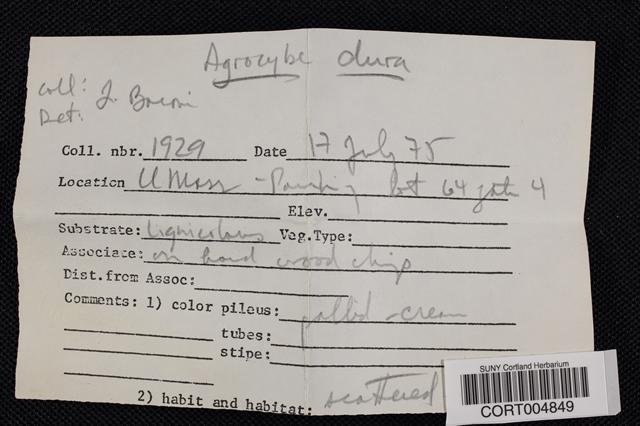 Agrocybe dura
Coll: J.
Det:
Coll. nbr. 1929 Date 17 July 75
Location U Mass - Parking Lot 64 gate 4
Elev.
Substrate: lignicolous Veg.Type:
Associate: on hard wood chips
Dist.from Assoc:
Comments: 1) color pileus: pallid-cream
tubes:
stipe:
2) habit and habitat: scattered
SUNY Cortland Herbarium
CORT004849